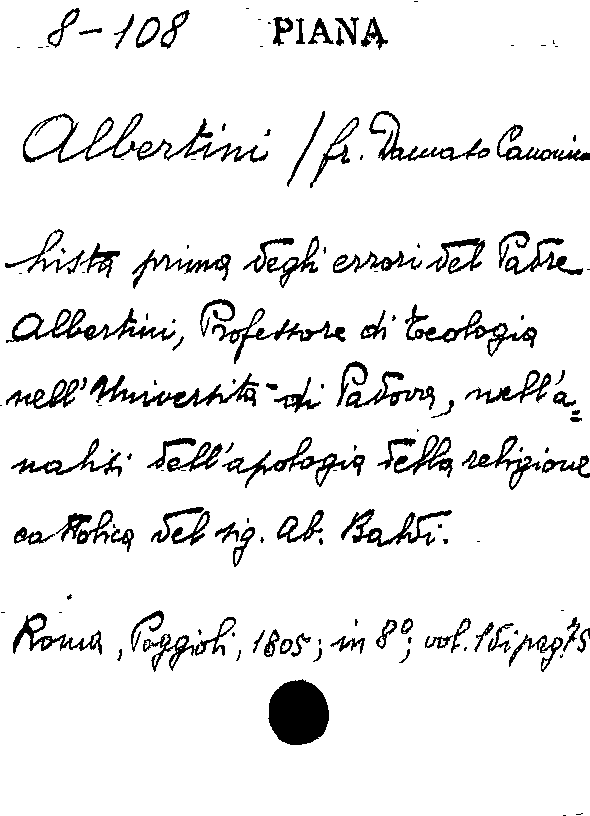 8-108 PIANA
Albertini / fr. Damaso Canonico
Lista prima degli errori del Padre
Albertini, Professore di teologia
nell'Università di Padova, nell'a=
nalisi dell'apologia della religione
cattolica del sig. Ab. Baldi.
Roma, Poggioli, 1805; in 8°; vol. 1 di pag. 75